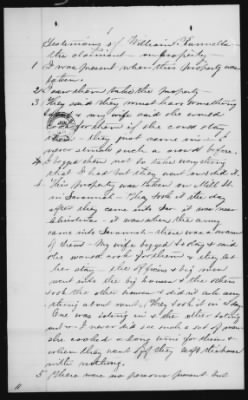 Testimony of William
the claimant — in property —
1 I was present when this property was
taken.
2 I saw them take the property —
3 They said they must have something
& my wife said she would
cook for them if she could stay
there — they just came in — I
never saw such a crowd before.
I begged them not to take everything
that I had but they went and did it.
4 This property was taken on Mill St.
in Savannah — They took it the day
after they came into
It was when the army
came into Savannah — there was a swarm
of them — My wife begged & said
she would cook for them & they let
her stay — the officers & big men
went into the big houses & the others
took the other houses & didn't ask any
thing about want. They took it in a day
One was taking in & the other taking
out — I never did see such a set of men
she cooked a long time for them &
when they went off they
with nothing.
5 There were no persons present but